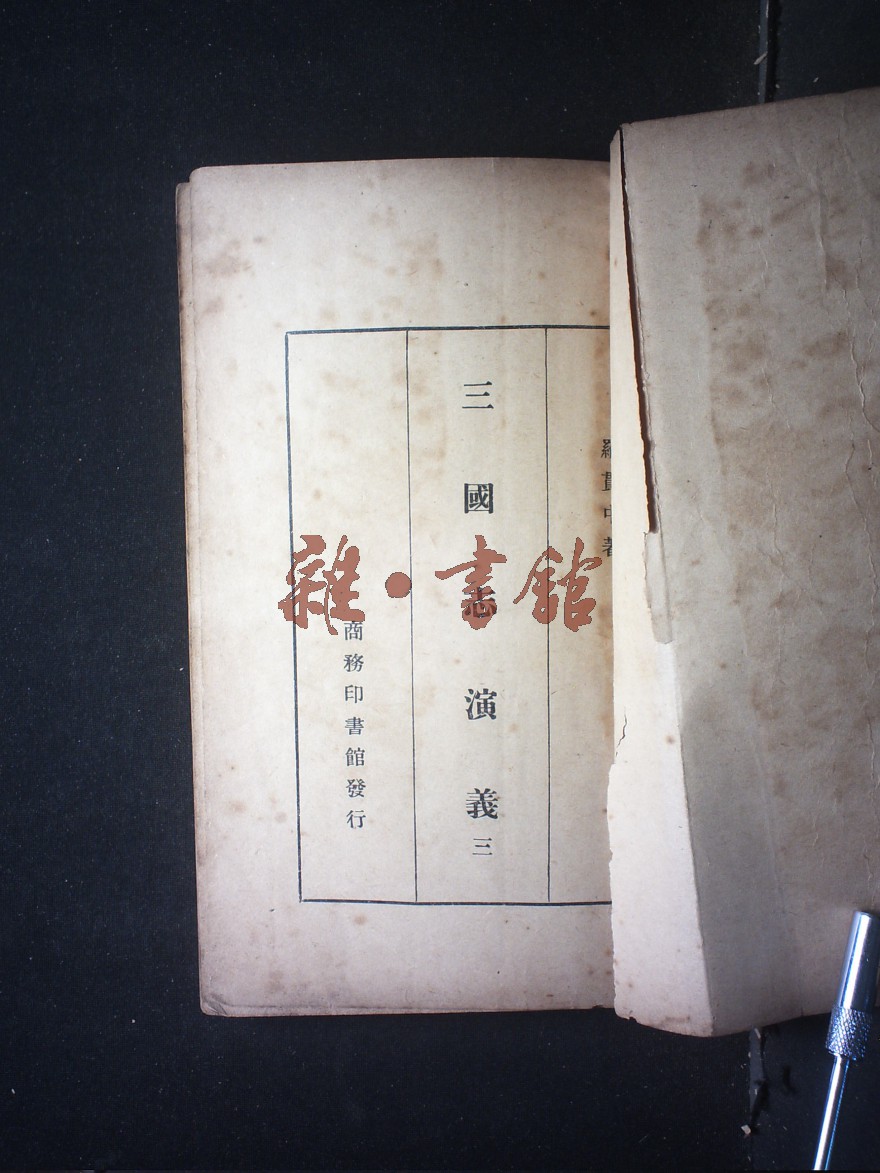 羅貫中著
三國志演義 三
商務印書館發行
雜·書館